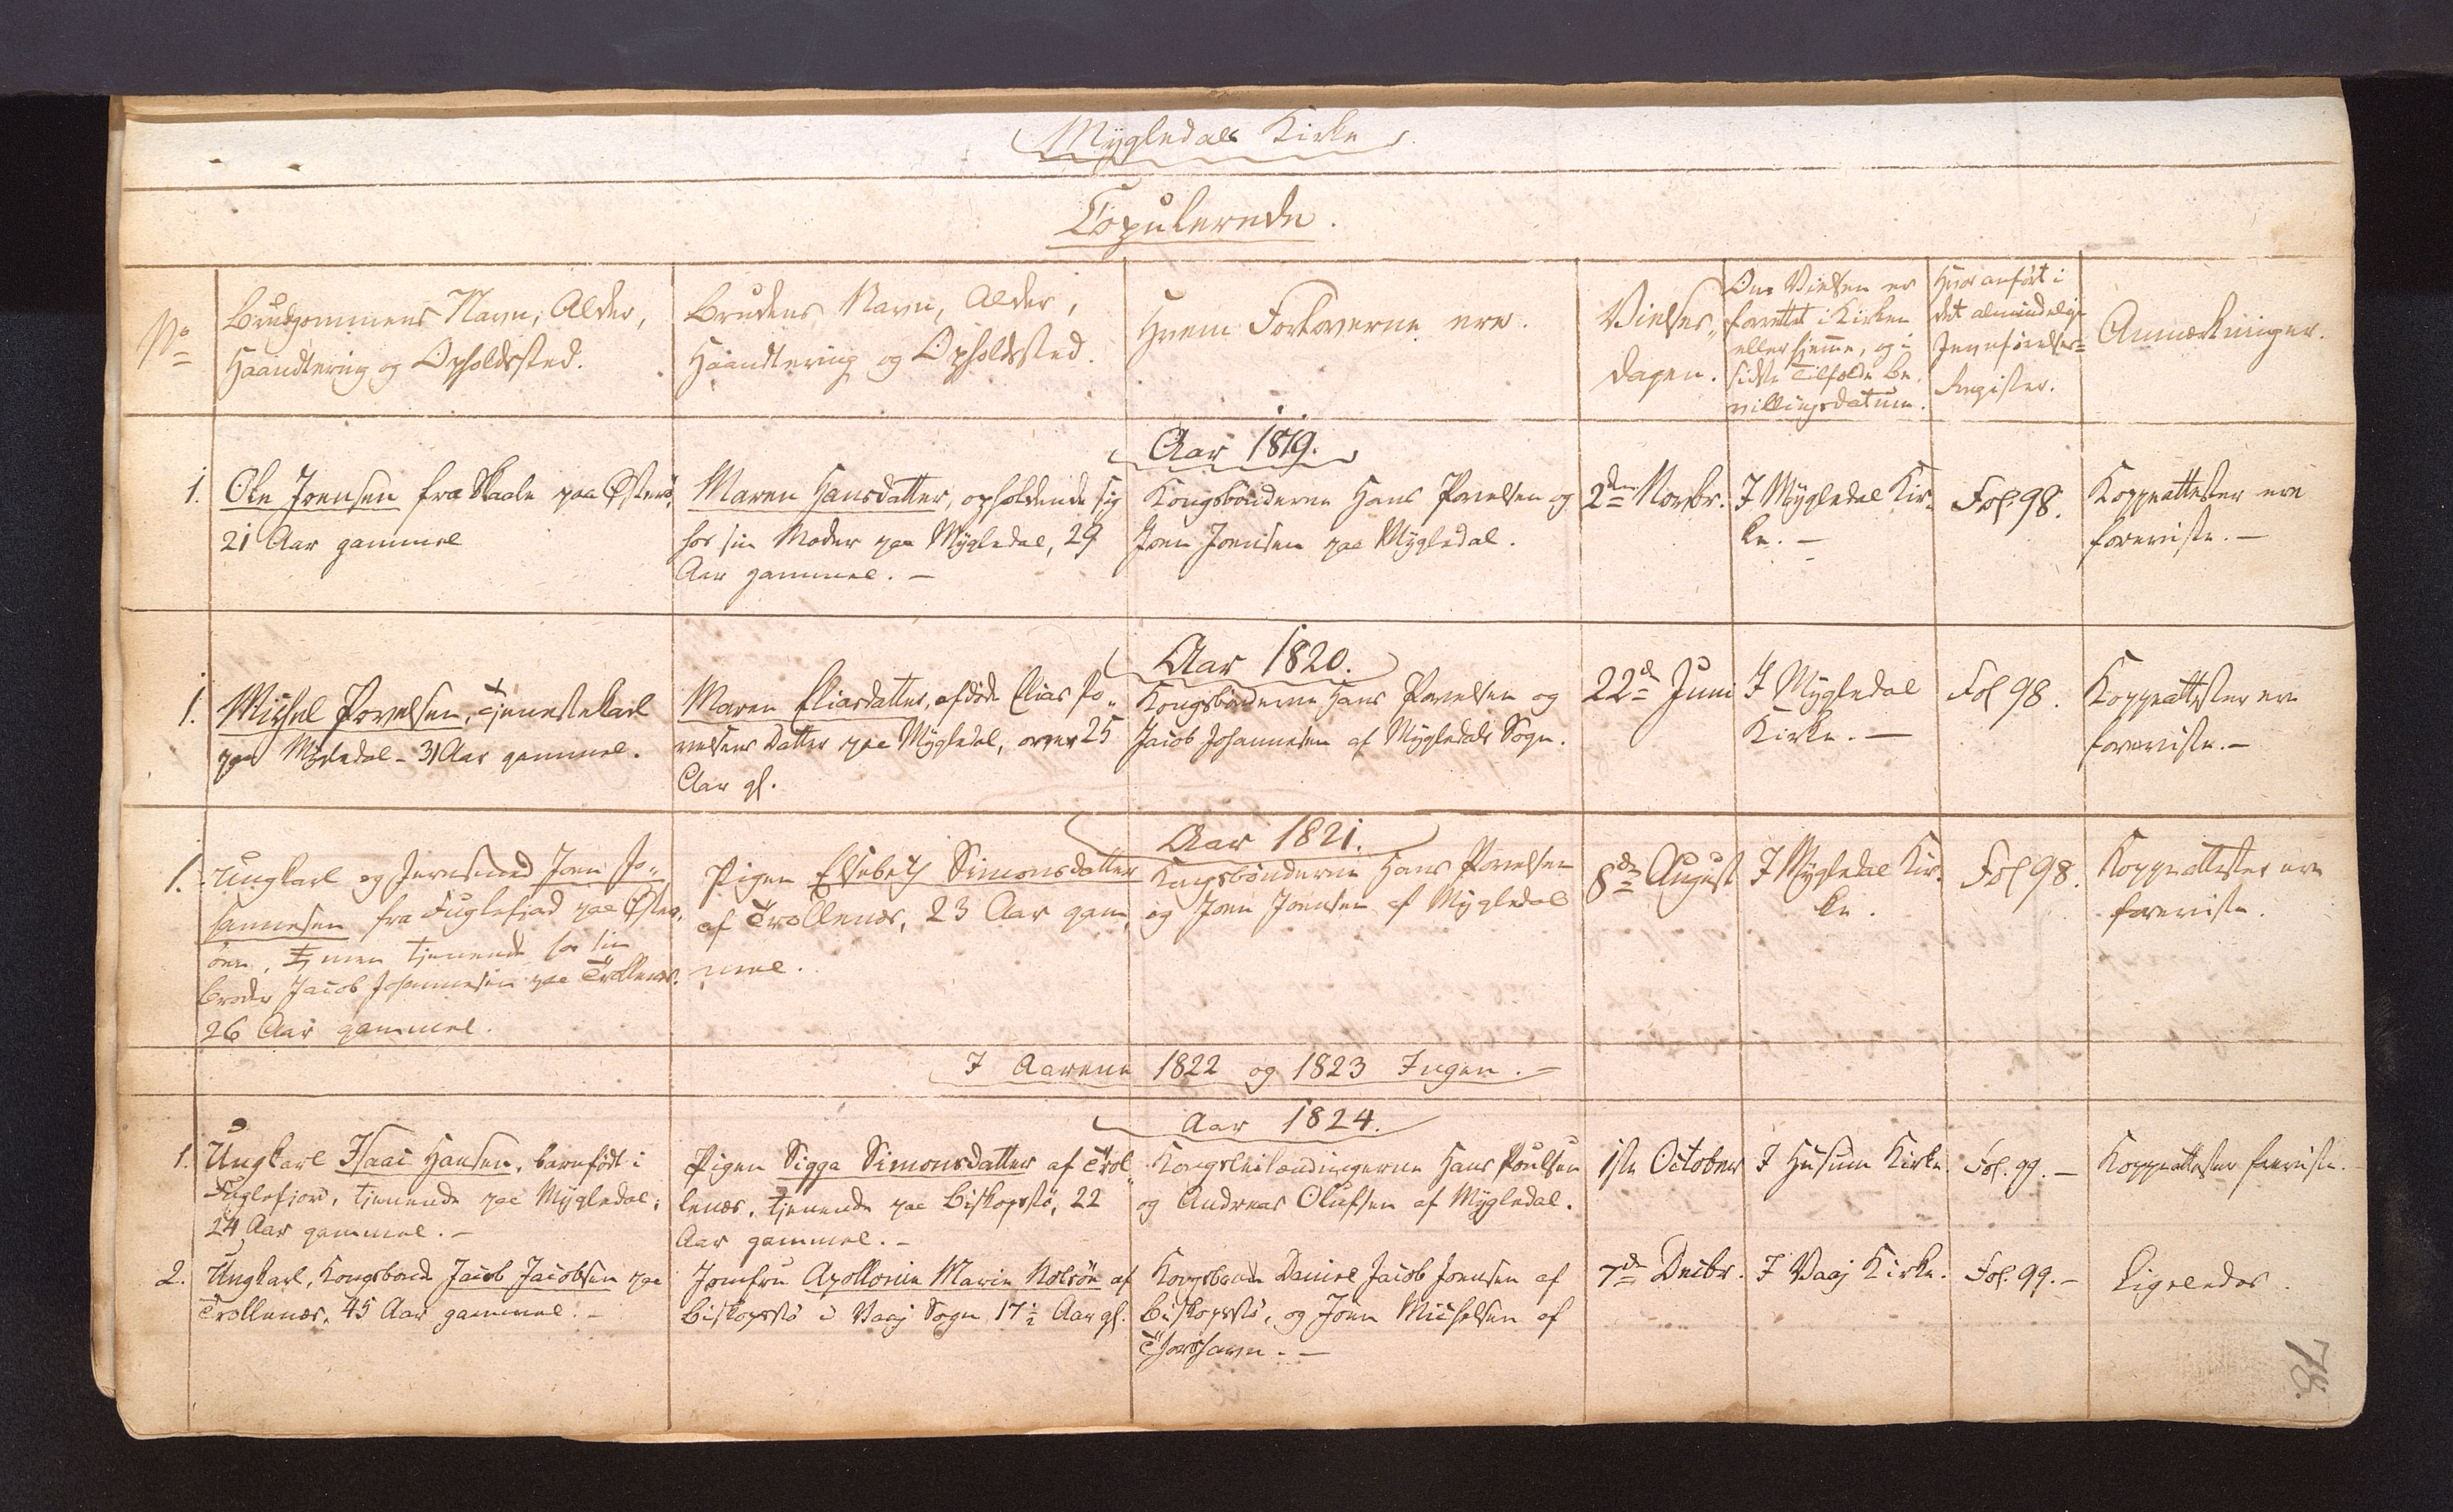 Mygledals Kirke
Copulerede.
No
Brudgommens Navn, Alder,
Haandtering og Opholdssted.
Brudens Navn, Alder,
Haandtering og Opholdssted.
Hvem Forloverne ere.
Vielses-
dagen.
Om Vielsen er
forrettet i Kirken
eller hjemme, og i
sidste Tilfælde Be-
villingsdatum.
Hvor anført i
det almindelige
Jevnførelses=
Register.
Anmærkninger.
Aar 1819.
1. Ole Joensen fra Skaale paa Østerø,
21 Aar gammel
Maren Hansdatter, opholdende sig
hos sin Moder paa Mygledal, 29
Aar gammel. -
Kongsbønderne Hans Povelsen og
Joen Joensen paa Mygledal.
2den Novbr.
I Mygledal Kir-
ke. -
Fol. 98.
Koppeattester ere
foreviste. -
Aar 1820.
1. Michel Povelsen, Tjenestekarl
paa Mygledal - 31 Aar gammel.
Maren Eliasdatter, afdøde Elias Po-
velsens Datter paa Mygledal, over 25
Aar gl.
Kongsbønderne Hans Povelsen og
Jacob Johannesen af Mygledals Sogn.
22de Juni
I Mygledal
Kirke. -
Fol 98.
Koppeattester ere
foreviste. -
Aar 1821.
1. Ungkarl og Jernsmed Joen Jo-
hannesen fra Fuglefjord paa Øster-
øen, men tjenende hos sin
Broder Jacob Johannesen paa Trollenæs.
26 Aar gammel.
Pigen Elsebeth Simonsdatter
af Trollenæs, 23 Aar gam-
mel.
Kongsbønderne Hans Povelsen
og Joen Joensen af Mygledal
8de August
I Mygledal Kir-
ke.
Fol 98.
Koppeattester ere
foreviste.
I Aarene 1822 og 1823 Ingen. -
Aar 1824.
1. Ungkarl Isaac Hansen, barnfødt i
Fuglefjord, tjenende paa Mygledal;
24 Aar gammel. -
Pigen Sigga Simonsdatter af Trol-
lenæs, tjenende paa Biskopstø, 22
Aar gammel. -
Kongsleilændingerne Hans Poulsen
og Andreas Olufsen af Mygledal.
1ste October
I Husum Kirke.
Fol. 99. -
Koppeattester foreviste. -
2. Ungkarl, Kongsbonde Jacob Jacobsen paa
Trollenæs, 45 Aar gammel. -
Jomfru Apollonia Marie Nolsøe af
Biskopstø i Vaaj Sogn 17 1/2 Aar gl.
Kongsbonde Daniel Jacob Joensen af
Biskopstø, og Joen Michelsen af
Thorshavn. -
7de Decbr.
I Vaaj Kirke.
Fol. 99. -
Ligeledes.
78.